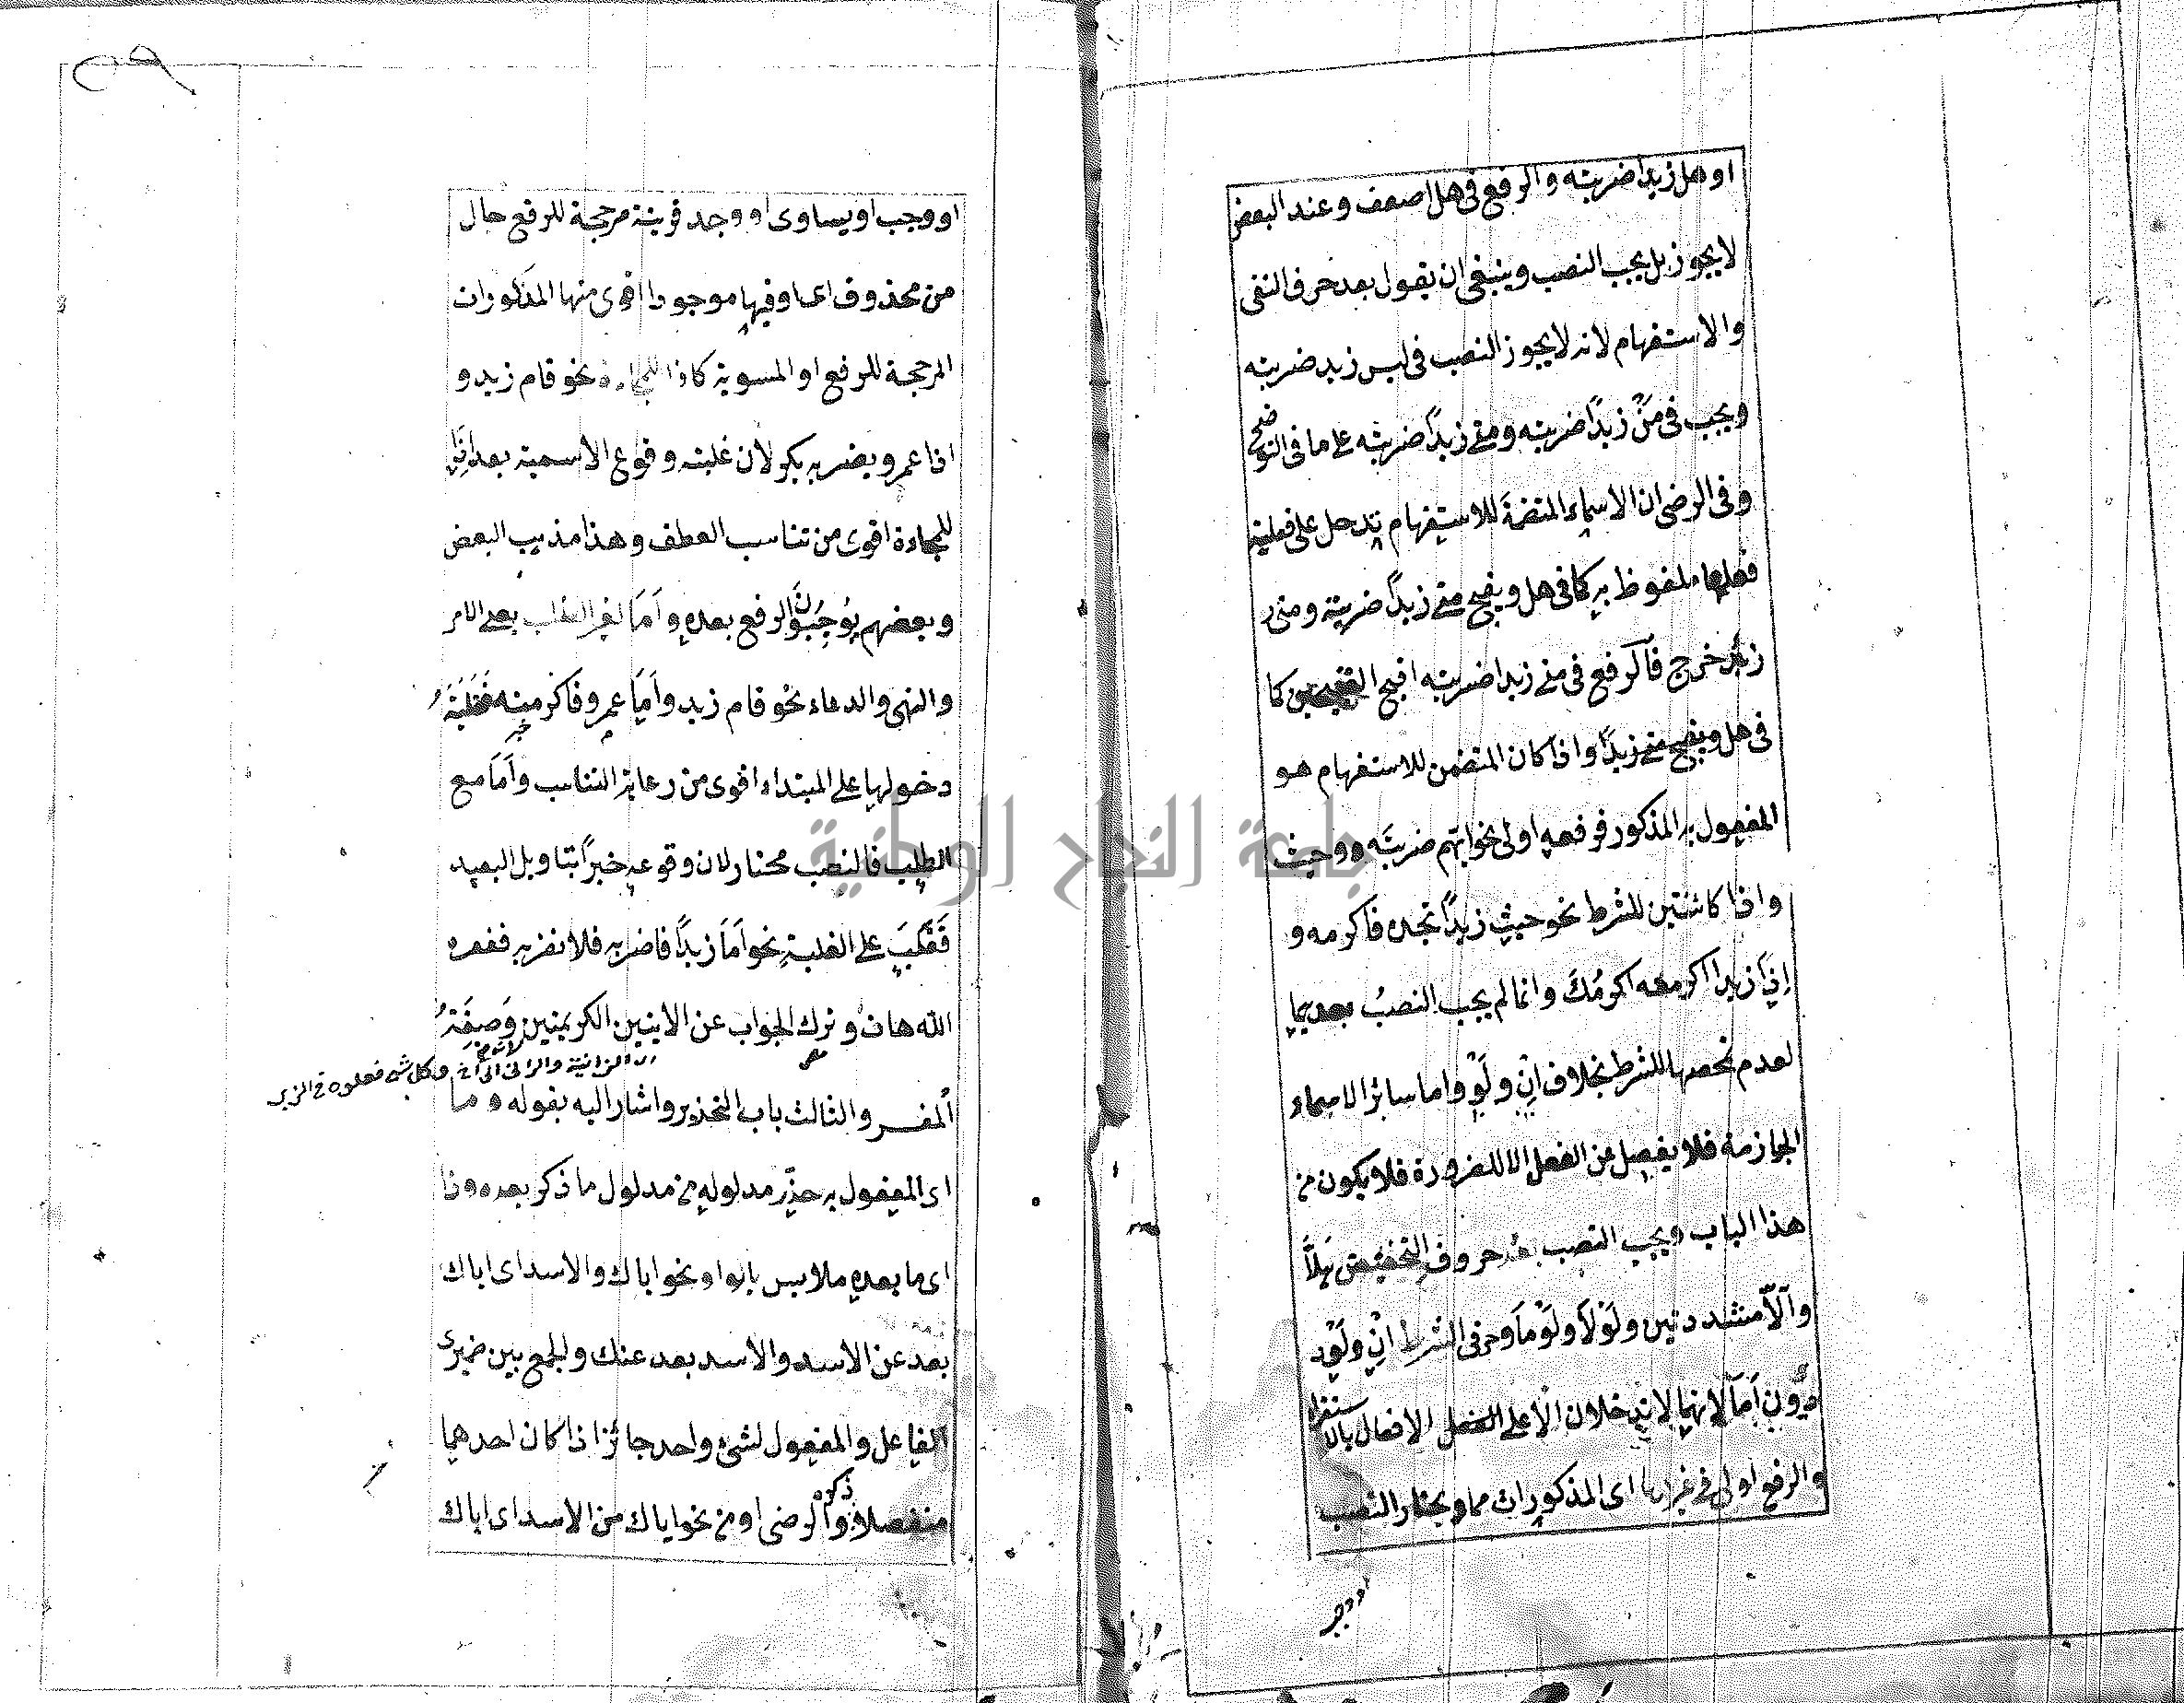 او هل زيدا ضربته والرفع فى هل اضعف وعند البعض
لا يجوز بل يجب النصب وينبغى ان يقول بعد حرف النفى
والاستفهام لانه لا يجوز النصب فى ليس زيد ضربته
ويجب فى مَنْ زيدًا ضربته ومتى زيدًا ضربته على ما فى التوضيح
وفى الرضى ان الاسماء المتضمنة للاستفهام تدخل على فعلية
فعلها ملفوظ به كما فى هل ويقبح متى زيدًا ضربته ومتى
زيد خرج فالرفع فى متى زيدا ضربته اقبح القبيحين كما
فى هل ويقبح متى زيدًا واذا كان المتضمن للاستفهام هو
المفعول به المذكور فرفعه اولى نحو ايّهم ضربتَه وحيث
واذا كائنتين للشرط نحو حيث زيدًا تجده فاكرمه و
اذا زيدا اكرمعه اكرمُكَ وانما لم يجب النصبُ بعديهما
لعدم تحضها للشرط بخلاف اِنْ ولَوْ واما سائر الاسماء
الجازمة فلا يفصل عن الفعل الا للضرورة فلا يكون من
هذا الباب ويجب النصب بعد حروف التحضيض هَلَّا
وألّا مشددتين ولَوْلَا ولَوْمَا وحرفى الشرط اِنْ ولَوْ
دون اَمّا لانهما لا يدخلان الا على الفعل الافعال بالاستقراء
والرفع اولى فى غيرها اى المذكورات مما يختار النصب
او وجب
او وجب او يساوى او وجد قرينة مرجحة للرفع حال
من محذوف اعا وفيها موجودا اقوى منها المذكورات
المرجحة للرفع او المسوية كاذا للمفاجاءة نحو قام زيد و
اذا عمرو يضربه بكر لان غلبته وقوع الاسمية بعد اذا
للمفاجاءة اقوى من تناسب العطف وهذا مذهب البعض
وبعضهم يوجبون الرفع بعده وأمّا لغير الطلب بعد الامر
والنهى والدعاء نحو قام زيد وأمّا عمرو فاكرمته فغلبة
دخولها على المبتداء اقوى من رعاية التناسب وأمّا مع
الطلب فالنصب مختار لان وقوعه خبرًا بتاويل البعيد
فغلب على الغلبةِ نحو أمّا زيدًا فاضربه فلا نضربه فغفره
الله هان وترك الجواب عن الايتين الكريمتين وصِفَةُ
الزانية والزانى الى آخ وكل شئ فعلوه فى الزبر
المفسر والثالث باب التحذير واشار اليه بقوله وما
اى المفعول به حذّر مدلوله من مدلول ما ذكر بعده وذا
اى ما بعده ملابس بالواو نحو اياك والاسد اى اياك
بعد عن الاسد والاسد بعد عنك والجمع بين ضميرى
الفاعل والمفعول لشئ واحد جائز اذا كان احدهما
منفصلا ذكره الرضى او من نحو اياك من الاسد اى اياك
جامعة النجاح الوطنية